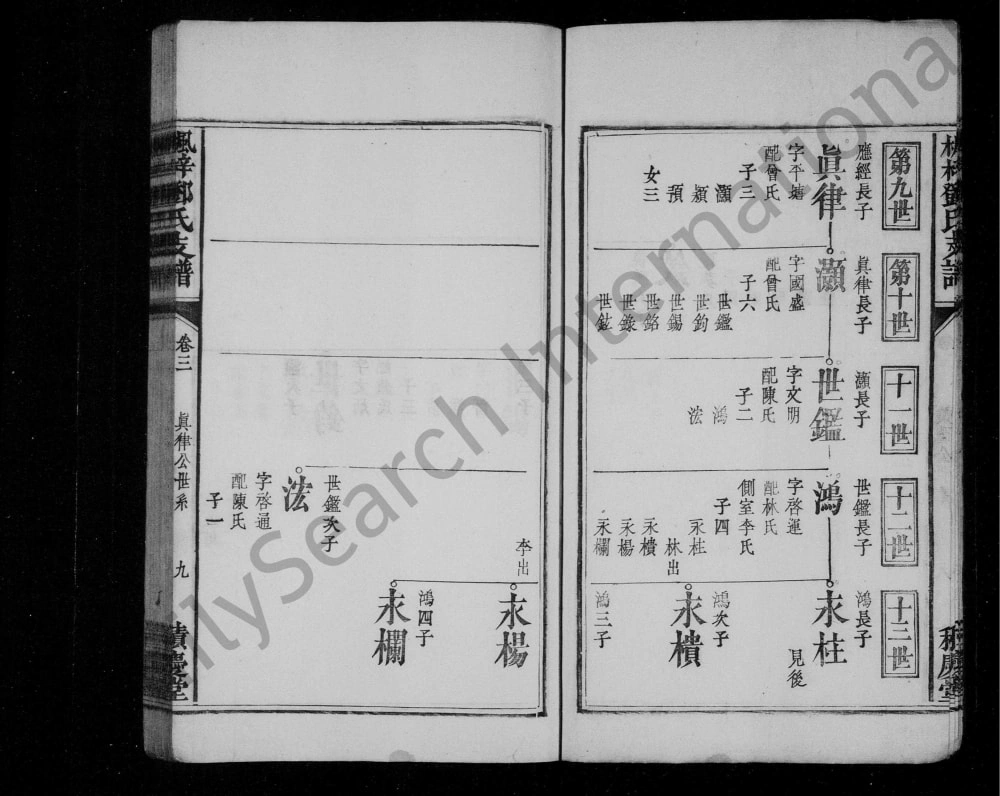 第九世
應經長子
眞律
字平塘
配曾氏
子三
灝
潁
預
女三
第十世
眞律長子
灝
字國盛
配曾氏
子六
世鑑
世鈞
世錫
世銘
世錄
世鈜
十一世
灝長子
世鑑
字文明
配陳氏
子二
鴻
浤
十二世
世鑑長子
鴻
字啓運
配林氏
側室李氏
子四
永柱
林出
永樻
永楊
永欄
十三世
鴻長子
永柱
見後
鴻次子
永樻
鴻三子
永楊
李出
鴻四子
永欄
世鑑次子
浤
字啓通
配陳氏
子一
鄧氏支譜
卷三
眞律公世系
九
積慶堂
FamilySearch International